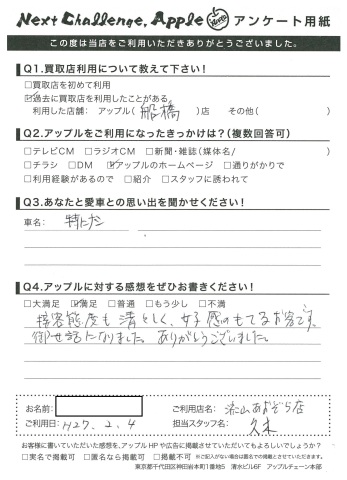 Next Challenge, Apple アンケート用紙
この度は当店をご利用いただきありがとうございました。
Q1.買取店利用について教えて下さい!
□買取店を初めて利用
☑過去に買取店を利用したことがある
利用した店舗: アップル( 船橋 )店 その他( )
Q2.アップルをご利用になったきっかけは?(複数回答可)
□テレビCM □ラジオCM □新聞・雑誌(媒体名/ )
□チラシ □DM ☑アップルのホームページ □通りがかりで
□利用経験があるので □紹介 □スタッフに誘われて
Q3.あなたと愛車との思い出を聞かせください!
車名: 特になし
Q4.アップルに対する感想をぜひお書きください!
□大満足 ☑満足 □普通 □もう少し □不満
接客態度も清々しく、好感のもてるお店です。
御世話になりました。ありがとうございました。
お名前: ご利用店名: 流山おおぞら店
ご利用日: H27.2.4 担当スタッフ名: 久木
お客様に書いていただいた感想を、アップルHPや広告に掲載させていただいてもよろしいでしょうか?
□実名で掲載可 □匿名なら掲載可 □掲載不可 ※ご記入がない場合は匿名での掲載とさせていただきます。
東京都千代田区神田岩本町1番地5 清水ビル6F アップルチェーン本部